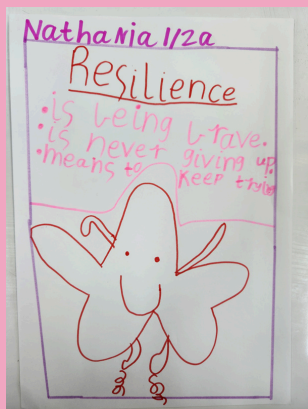 Nathania 1/2a
Resilience
•is being brave.
•is never giving up.
•means to keep trying